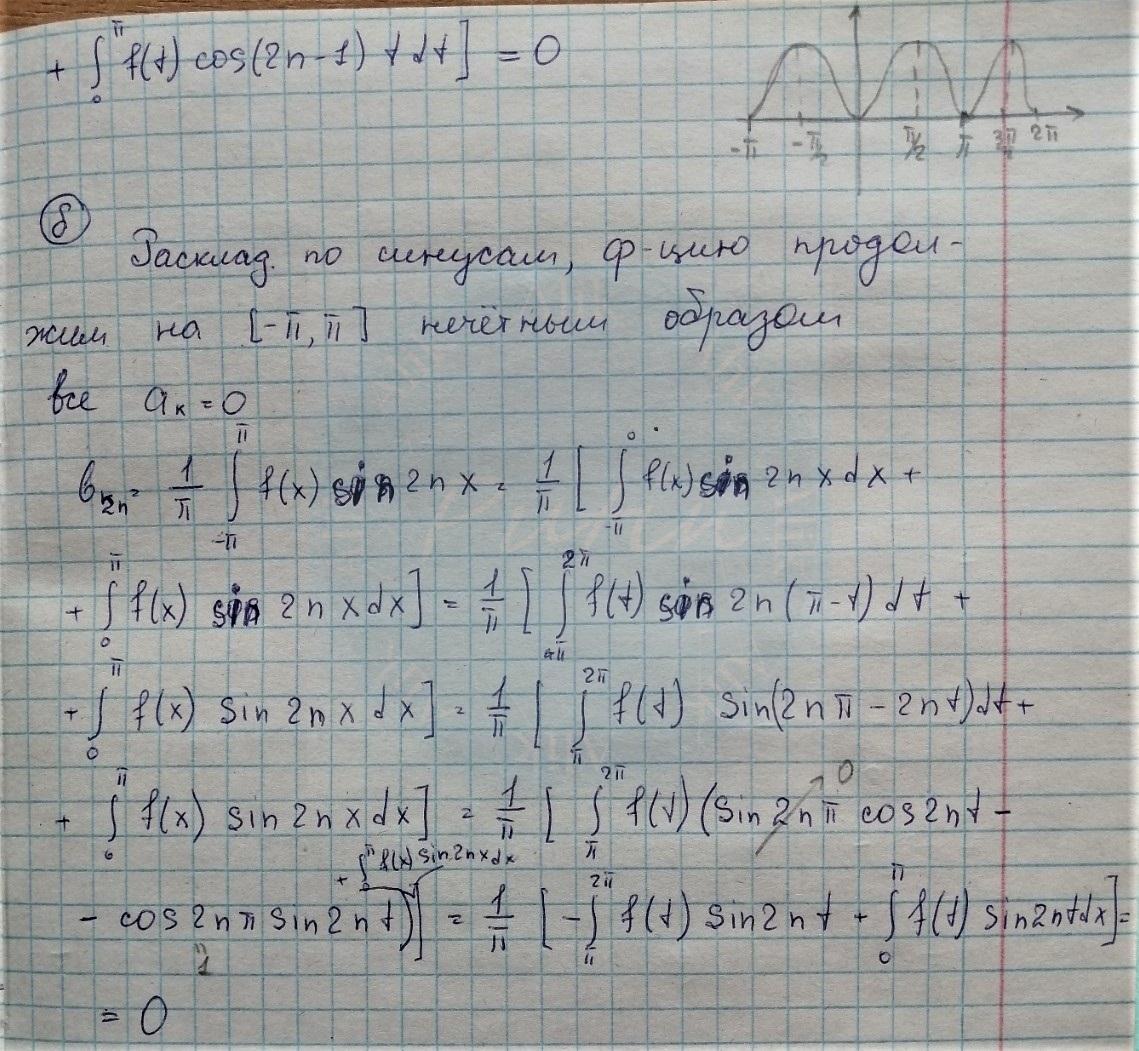 + ∫₀^π f(t) cos(2n-1) t dt] = 0
-π -π/2 π/2 π 3π/2 2π
б
Расклад. по синусам, ф-цию продол-
жим на [-π, π] нечётным образом
все aₖ = 0
b₂ₙ = 1/π ∫_{-π}^{π} f(x) sin 2n x = 1/π [ ∫_{-π}^{0} f(x) sin 2n x dx +
+ ∫₀^π f(x) sin 2n x dx] = 1/π [ ∫_π^{2π} f(t) sin 2n (π-t) dt +
+ ∫₀^π f(x) sin 2n x dx] = 1/π [ ∫_π^{2π} f(t) sin(2nπ - 2nt)dt +
+ ∫₀^π f(x) sin 2n x dx] = 1/π [ ∫_π^{2π} f(t) (sin 2n π cos 2nt -
0
+ ∫₀^π f(x) sin 2n x dx
- cos 2n π sin 2n t)] = 1/π [ - ∫_π^{2π} f(t) sin 2n t + ∫₀^π f(t) sin 2nt dx] =
1
= 0